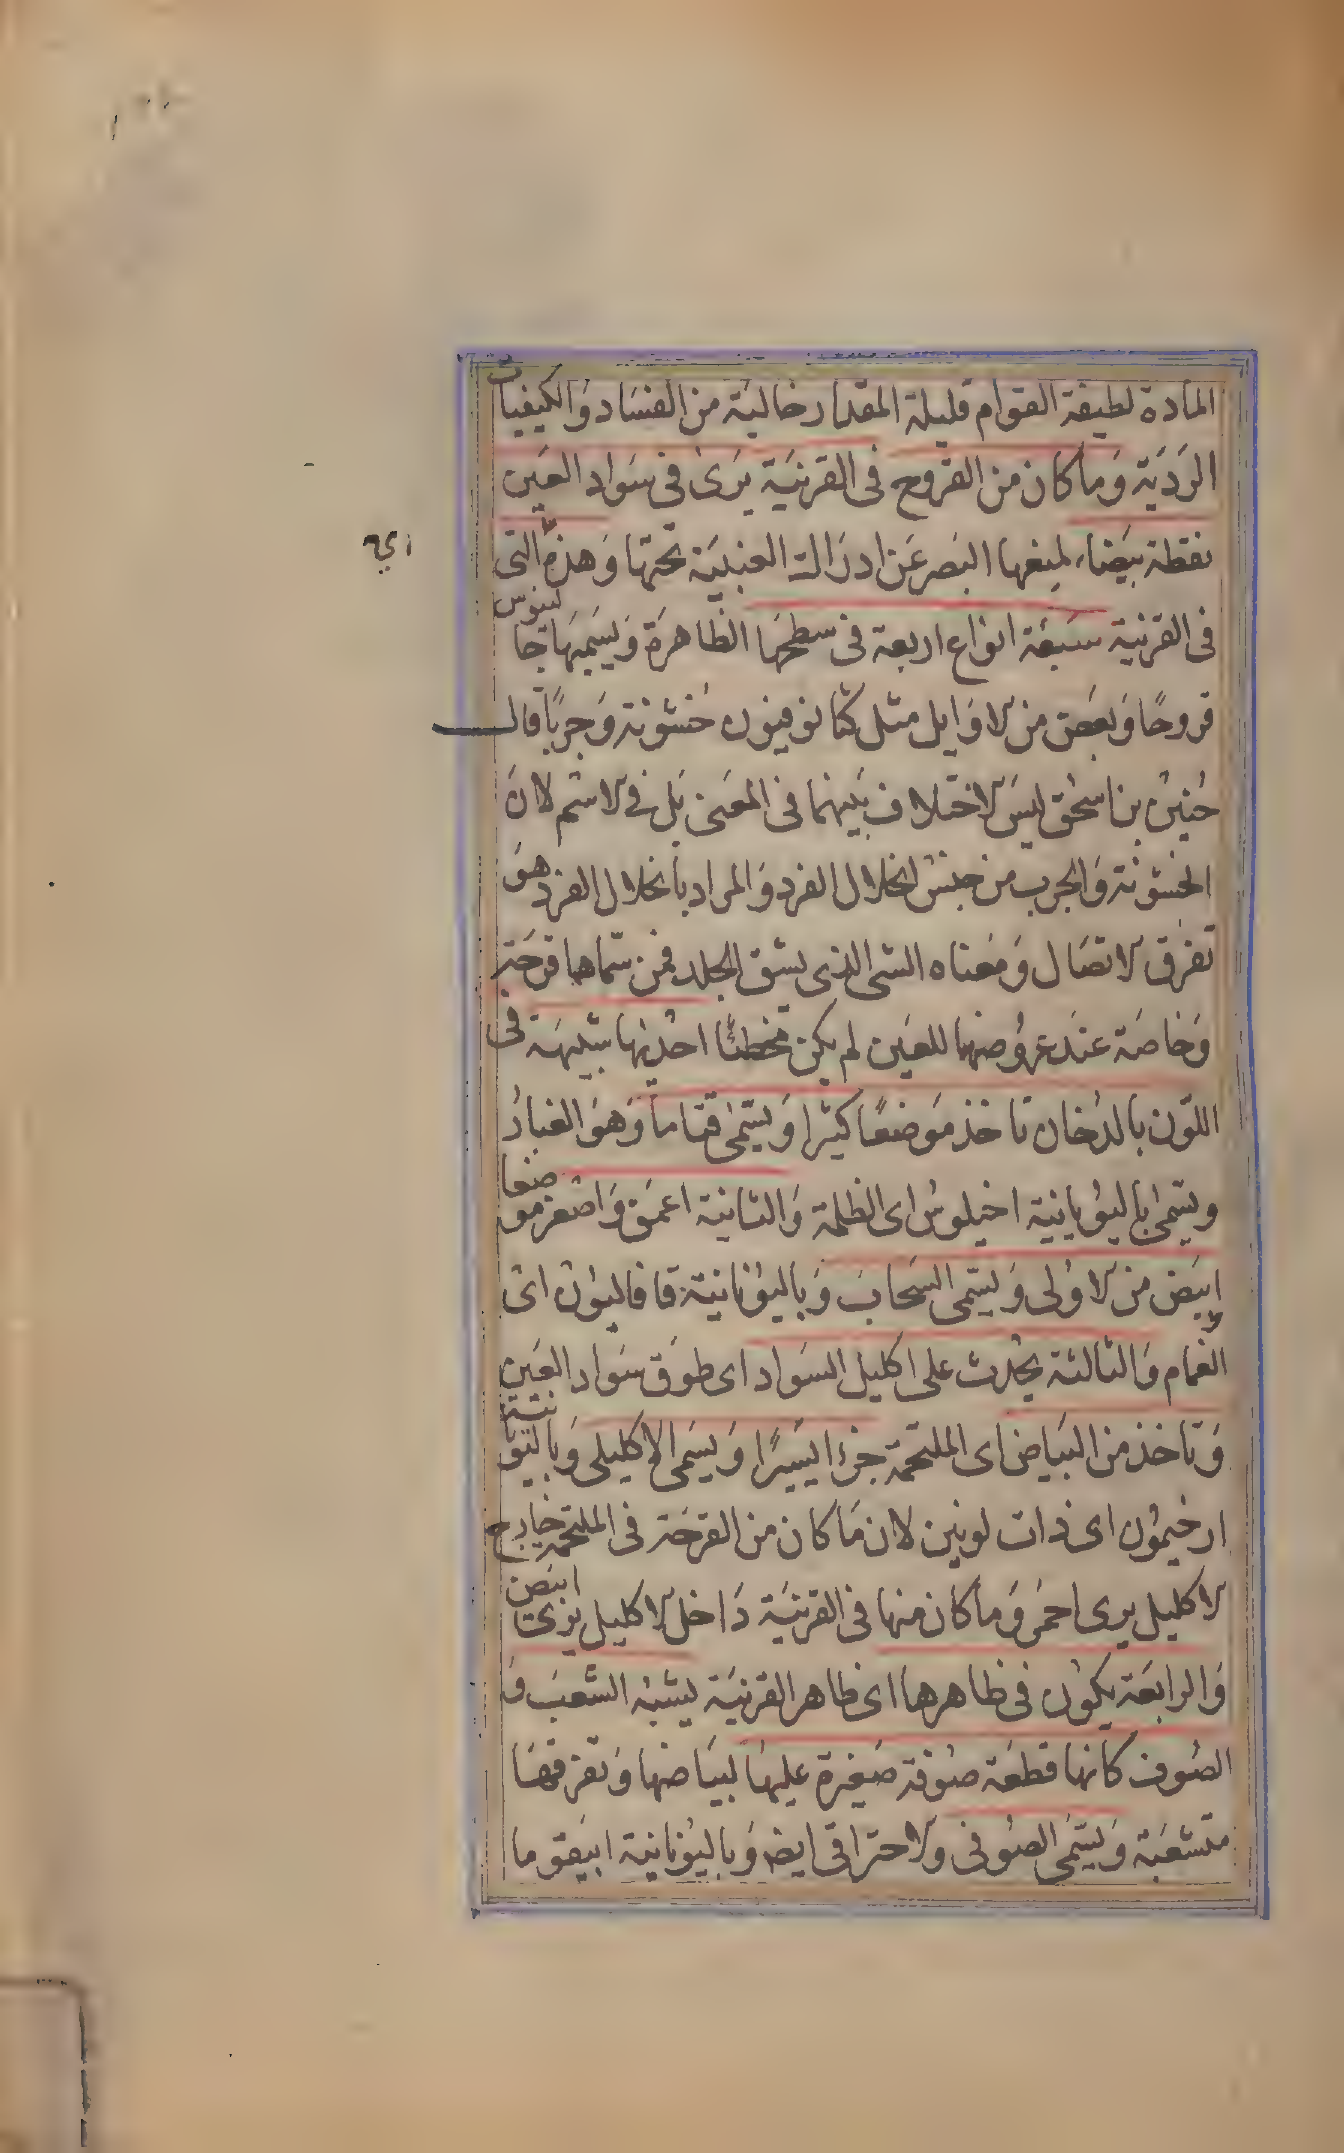 المادة لطيفة القوام قليلة المقدار خالية من الفساد والكيفيات
الرَديّة وَما كان من القروح فى القرنيَة يَرىٰ فى سَواد العَين
نقطة بيَضاء لمنعها البَصر عَن ادرَاك العنبيَة تحتها وَهذه التى
اى
فى القرنية سَبعَة انواع اربعة فى سطحهَا الظاهرَة وَيسَميهَا جالينوس
قروحًا وَبعَض من الاوَايل مثل كثانوفيون خُشونة وَجربًا قال
حُنين بن اسحٰق ليسَ الاختلاف بَينهما فى المعَنى بَل فى الاسم لانَ
الخشونة وَالجرب من جنسْ انحلال الفرد وَالمراد بانحلال الفرد هوَ
تفرق الاتصَال وَمَعناه الشى الذى يشق الجلد فمن سَمّاهما قرحَة
وَخاصَة عندَ عرُوضها للعَين لم يكن مخطئًا احدٰيها شبيهَة فى
اللّون بالدُخان تاخذ مَوضعًا كثيرًا وَيسَمّىٰ قتامًا وَهوَ الغبارُ
ويسَمّىٰ باليوُيانية اخيلوسْ اى الظلمة وَالثانية اعمَق وَاصْغر موضعا
ابيَض من الاوْلى وَيسَمّى السَحابَ وَباليوُنانيّة قافاليوُن اى
الغمام وَالثالثة يحْدث على اكليل السَواد اى طوَق سَواد العَين
وَتاخذ من البَياض اى الملتحمَة جزءًا يسَيرًا وَيسَمى الاكليلى وَباليوُنانية
ارخيمُون اى ذات لونين لان مَا كان من القرحَة فى الملتحمَة خارج
الاكليل يرى احمَر وَما كان منها فى القرنيَة دَاخل الاكليل يرَىٰ ابيَض
وَالرابعَة يكُون فى ظاهرها اى ظاهر القرنيَة يشبْه الشعَب وَ
الصُوف كانها قطعَة صُوفة صَغيرة عليهَا لبيَاضها وَتفرقهَا
متشعَبَة وَيسَمّى الصُوفى والاحتراقى ايضا وَباليُونانية ابيَقوما